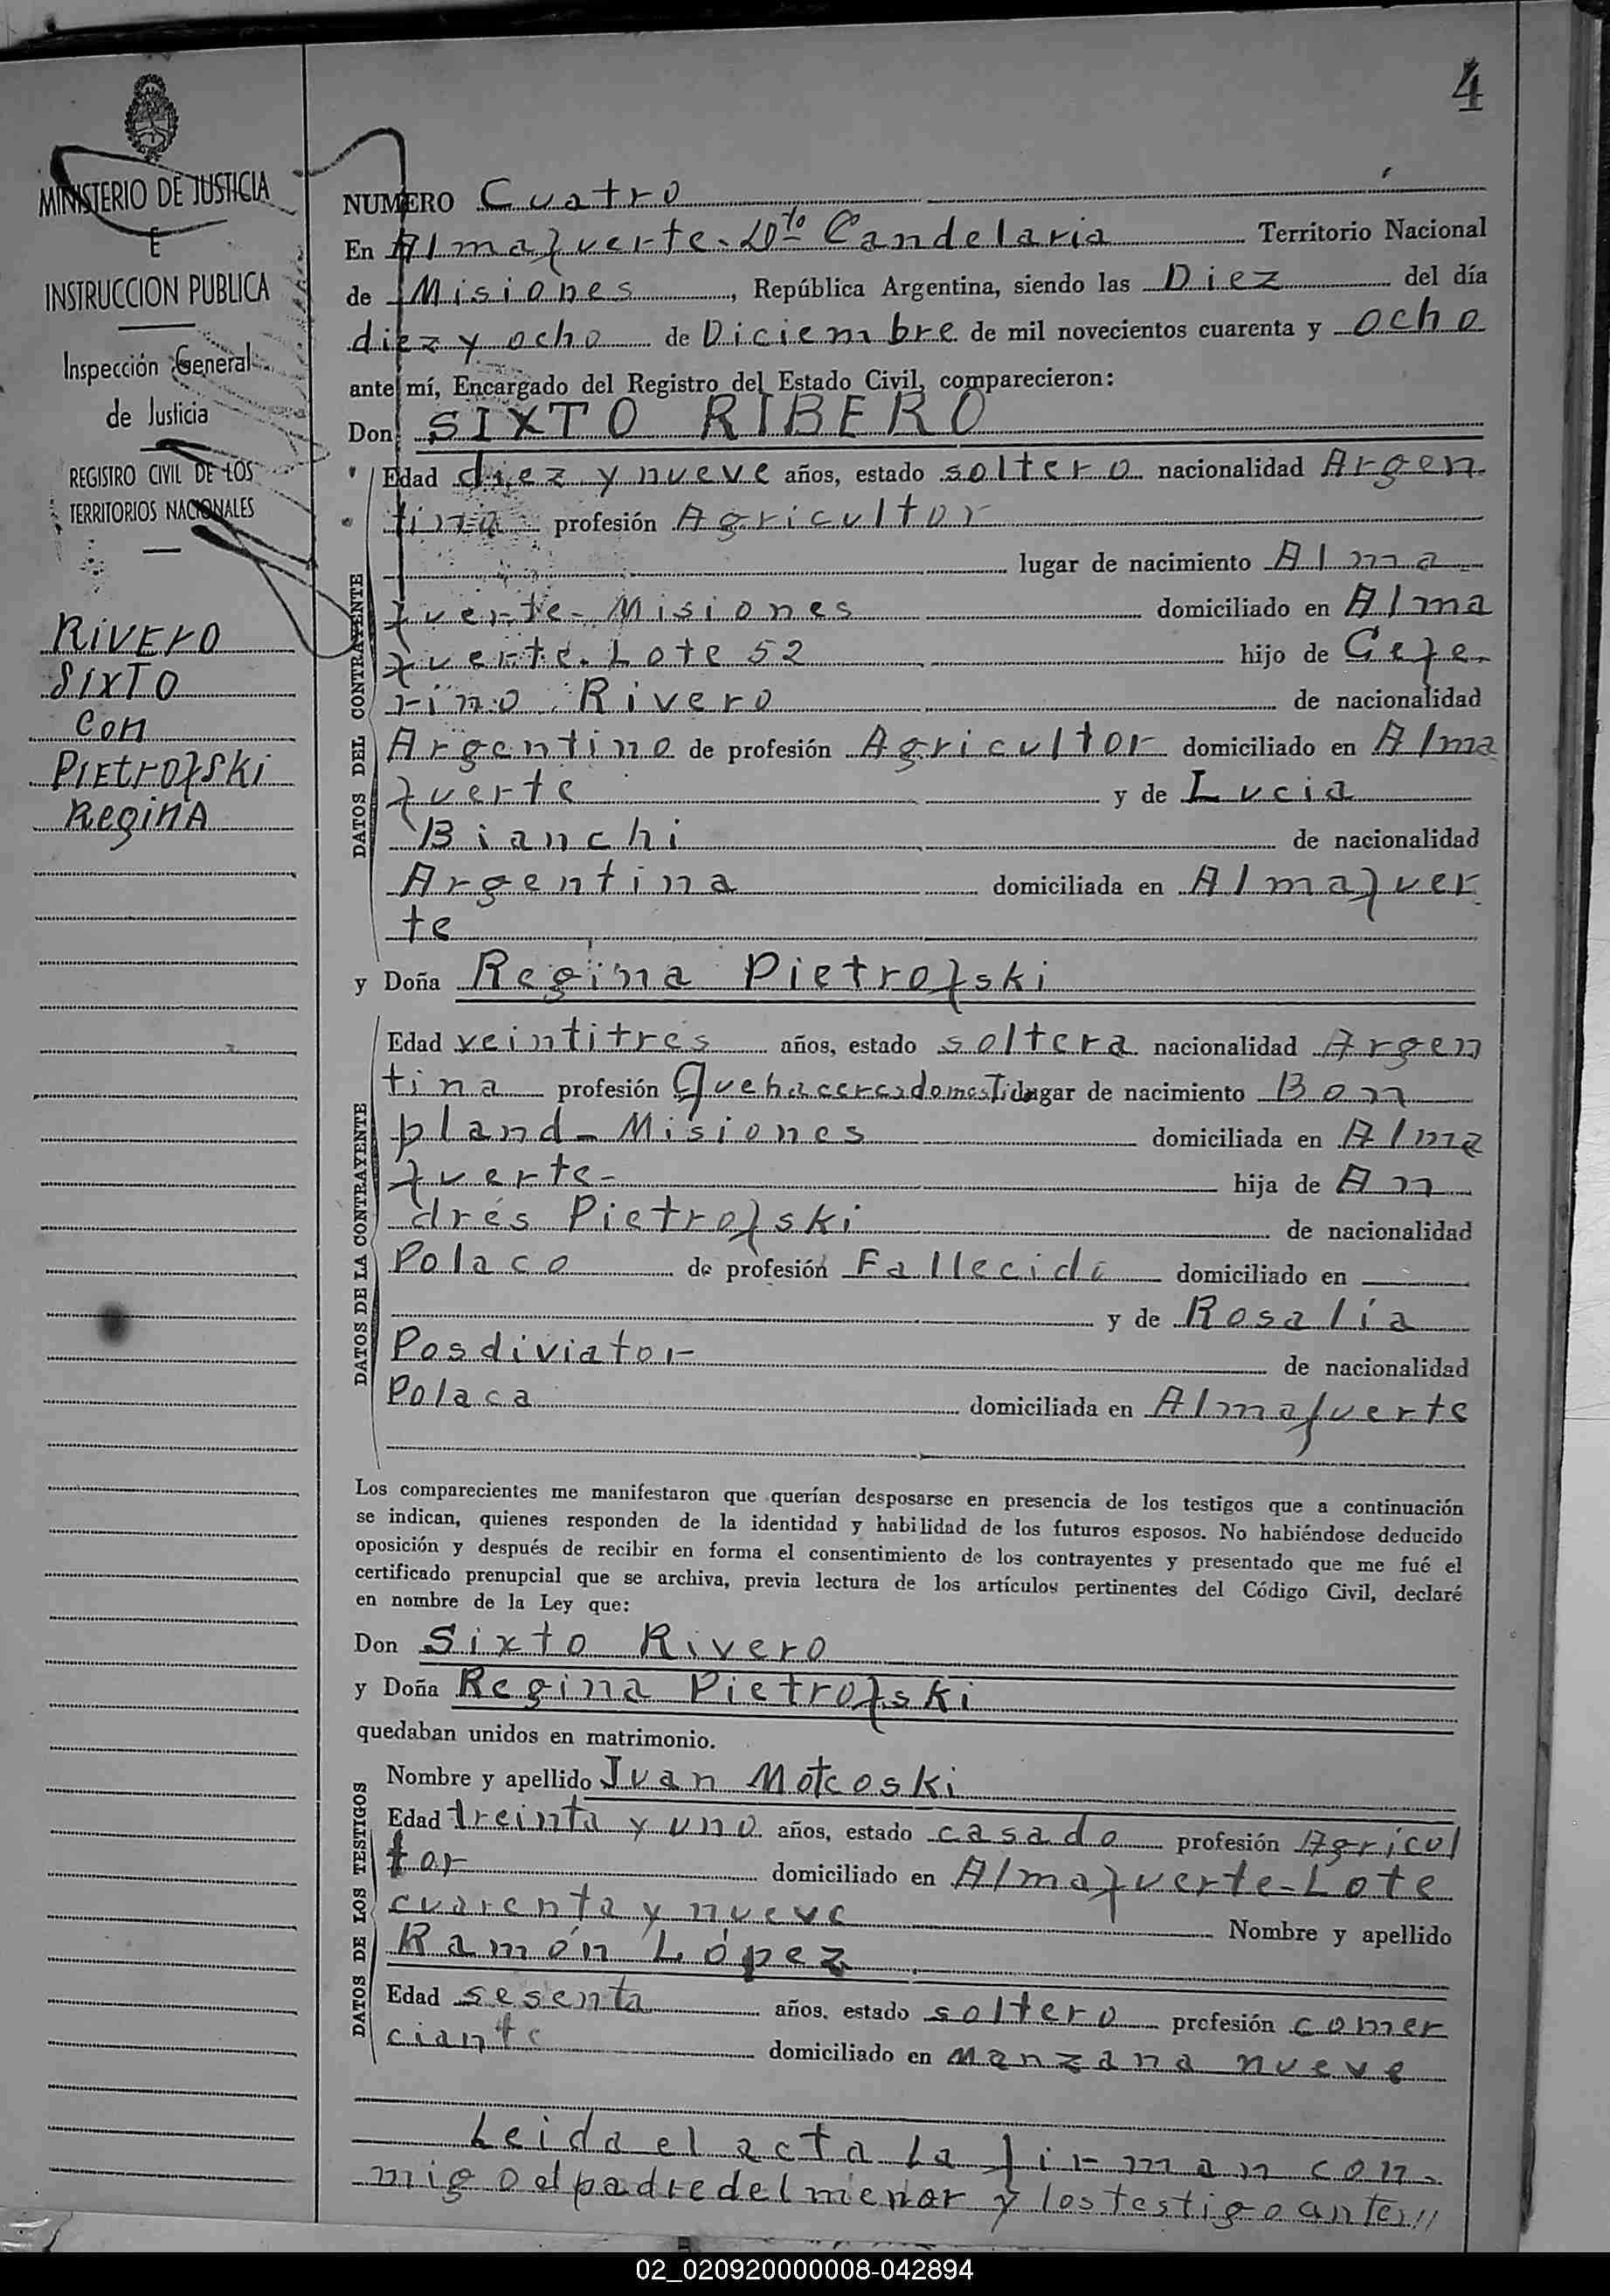 4
MINISTERIO DE JUSTICIA
E
INSTRUCCION PUBLICA
Inspección General
de Justicia
REGISTRO CIVIL DE LOS
TERRITORIOS NACIONALES
RIVERO
SIXTO
CON
PIETROfSKi
REginA
NUMERO Cuatro
En Almafuerte - Dto Candelaria Territorio Nacional
de Misiones, República Argentina, siendo las Diez del día
diez y ocho de Diciembre de mil novecientos cuarenta y ocho
ante mí, Encargado del Registro del Estado Civil, comparecieron:
Don SIXTO RIBERO
DATOS DEL CONTRAYENTE
Edad diez y nueve años, estado soltero nacionalidad Argen
tina profesión Agricultor
lugar de nacimiento Alma
fuerte - Misiones domiciliado en Alma
fuerte. Lote 52 hijo de Cefe-
rino Rivero de nacionalidad
Argentino de profesión Agricultor domiciliado en Alma
fuerte y de Lucia
Bianchi de nacionalidad
Argentina domiciliada en Almafuer
te
y Doña Regina Pietrofski
DATOS DE LA CONTRAYENTE
Edad veintitres años, estado soltera nacionalidad Argen
tina profesión Quehaceres domesti lugar de nacimiento Bon
pland - Misiones domiciliada en Alma
fuerte - hija de An
drés Pietrofski de nacionalidad
Polaco de profesión Fallecido domiciliado en
y de Rosalía
Posdiviator de nacionalidad
Polaca domiciliada en Almafuerte
Los comparecientes me manifestaron que querían desposarse en presencia de los testigos que a continuación
se indican, quienes responden de la identidad y habilidad de los futuros esposos. No habiéndose deducido
oposición y después de recibir en forma el consentimiento de los contrayentes y presentado que me fué el
certificado prenupcial que se archiva, previa lectura de los artículos pertinentes del Código Civil, declaré
en nombre de la Ley que:
Don Sixto Rivero
y Doña Regina Pietrofski
quedaban unidos en matrimonio.
DATOS DE LOS TESTIGOS
Nombre y apellido Juan Motcoski
Edad treinta y uno años, estado casado profesión Agricul
tor domiciliado en Almafuerte - Lote
cuarenta y nueve Nombre y apellido
Ramón López
Edad sesenta años, estado soltero profesión comer
ciante domiciliado en manzana nueve
Leida el acta la firman con-
migo el padre del menor y los testigo antes
02_020920000008-042894